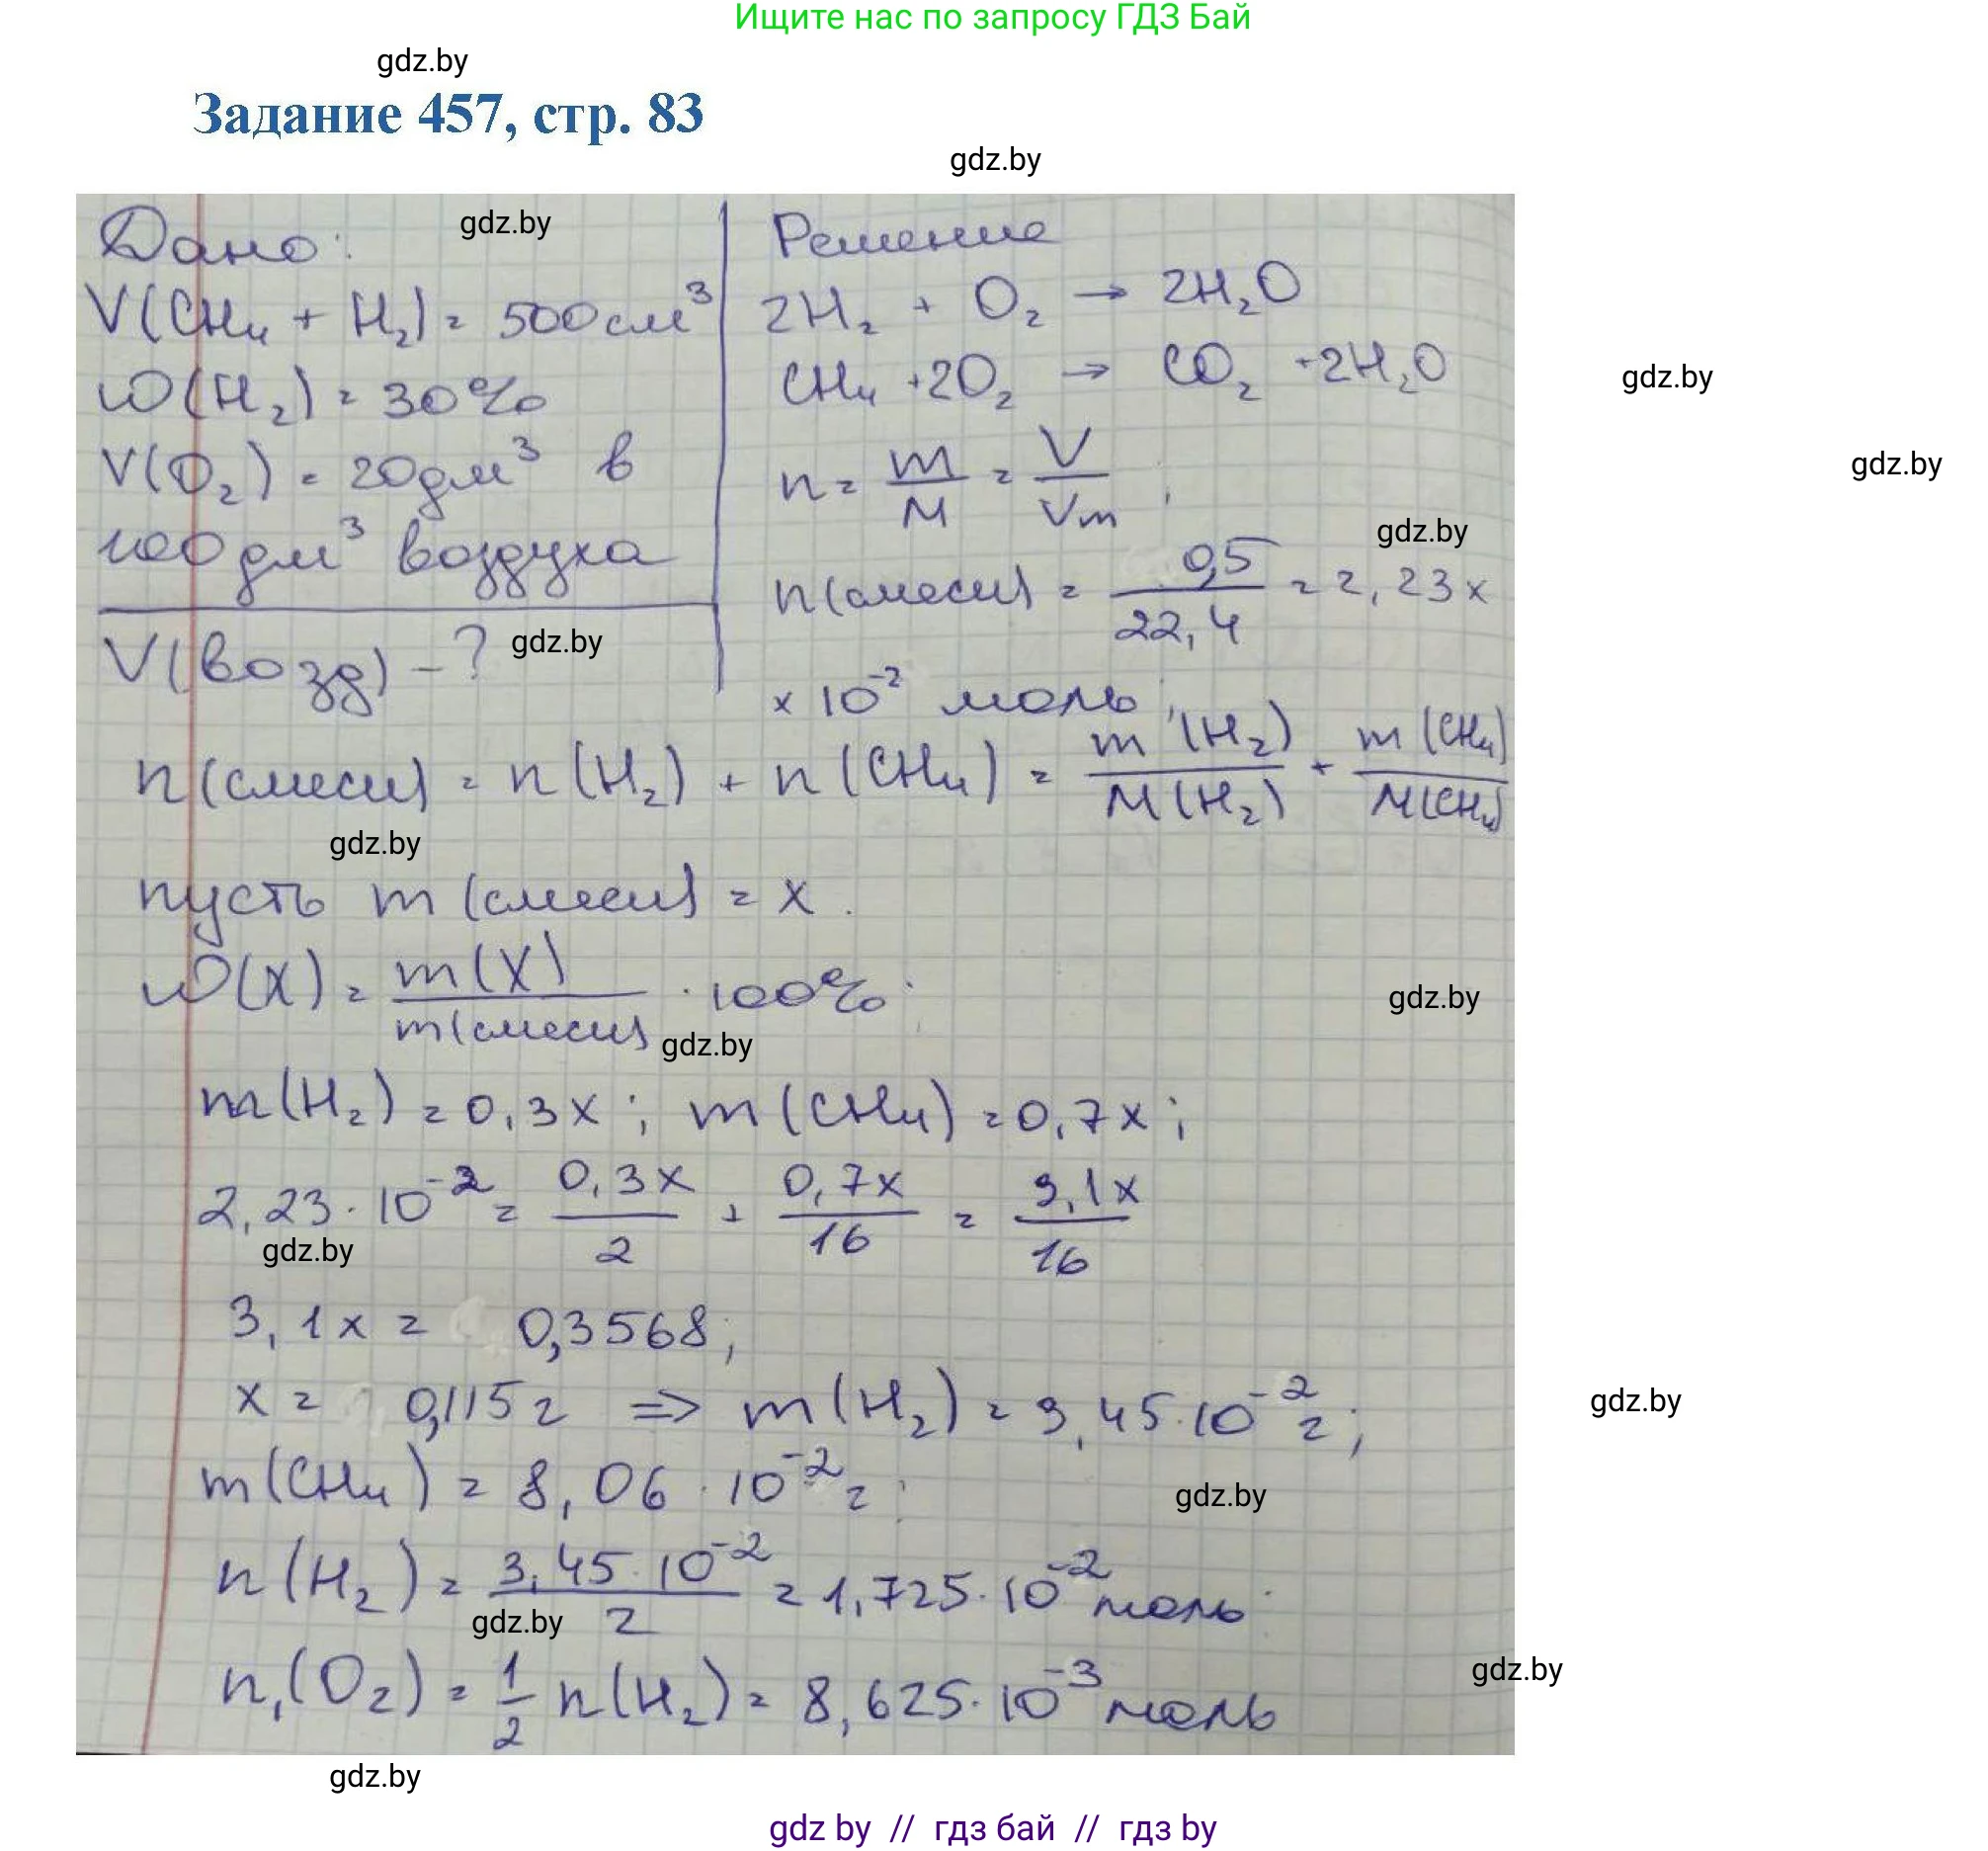 Ищите нас по запросу ГДЗ Бай
gdz.by
Задание 457, стр. 83
gdz.by
Дано: gdz.by
V(CH₄ + H₂) = 500 см³
ω(H₂) = 30%
V(O₂) = 20 дм³ в
100 дм³ воздуха
V(возд) - ? gdz.by
Решение
2H₂ + O₂ → 2H₂O
CH₄ + 2O₂ → CO₂ + 2H₂O
gdz.by
gdz.by
n = m/M = V/Vm;
gdz.by
n(смеси) = 0,5/22,4 = 2,23 x
x 10⁻² моль;
n(смеси) = n(H₂) + n(CH₄) = m(H₂)/M(H₂) + m(CH₄)/M(CH₄)
gdz.by
пусть m(смеси) = x.
ω(X) = m(X)/m(смеси) · 100%;
gdz.by
gdz.by
m(H₂) = 0,3x; m(CH₄) = 0,7x;
2,23 · 10⁻² = 0,3x/2 + 0,7x/16 = 3,1x/16
gdz.by
3,1x = 0,3568;
x = 0,115 г => m(H₂) = 3,45 · 10⁻² г;
gdz.by
m(CH₄) = 8,06 · 10⁻² г;
gdz.by
n(H₂) = 3,45 · 10⁻²/2 = 1,725 · 10⁻² моль;
gdz.by
n₁(O₂) = 1/2 n(H₂) = 8,625 · 10⁻³ моль
gdz.by
gdz.by
gdz by // гдз бай // гдз by